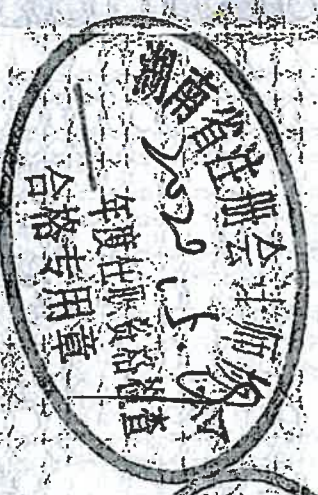 湖南省注册会计师协会
年度任职资格检查
合格专用章